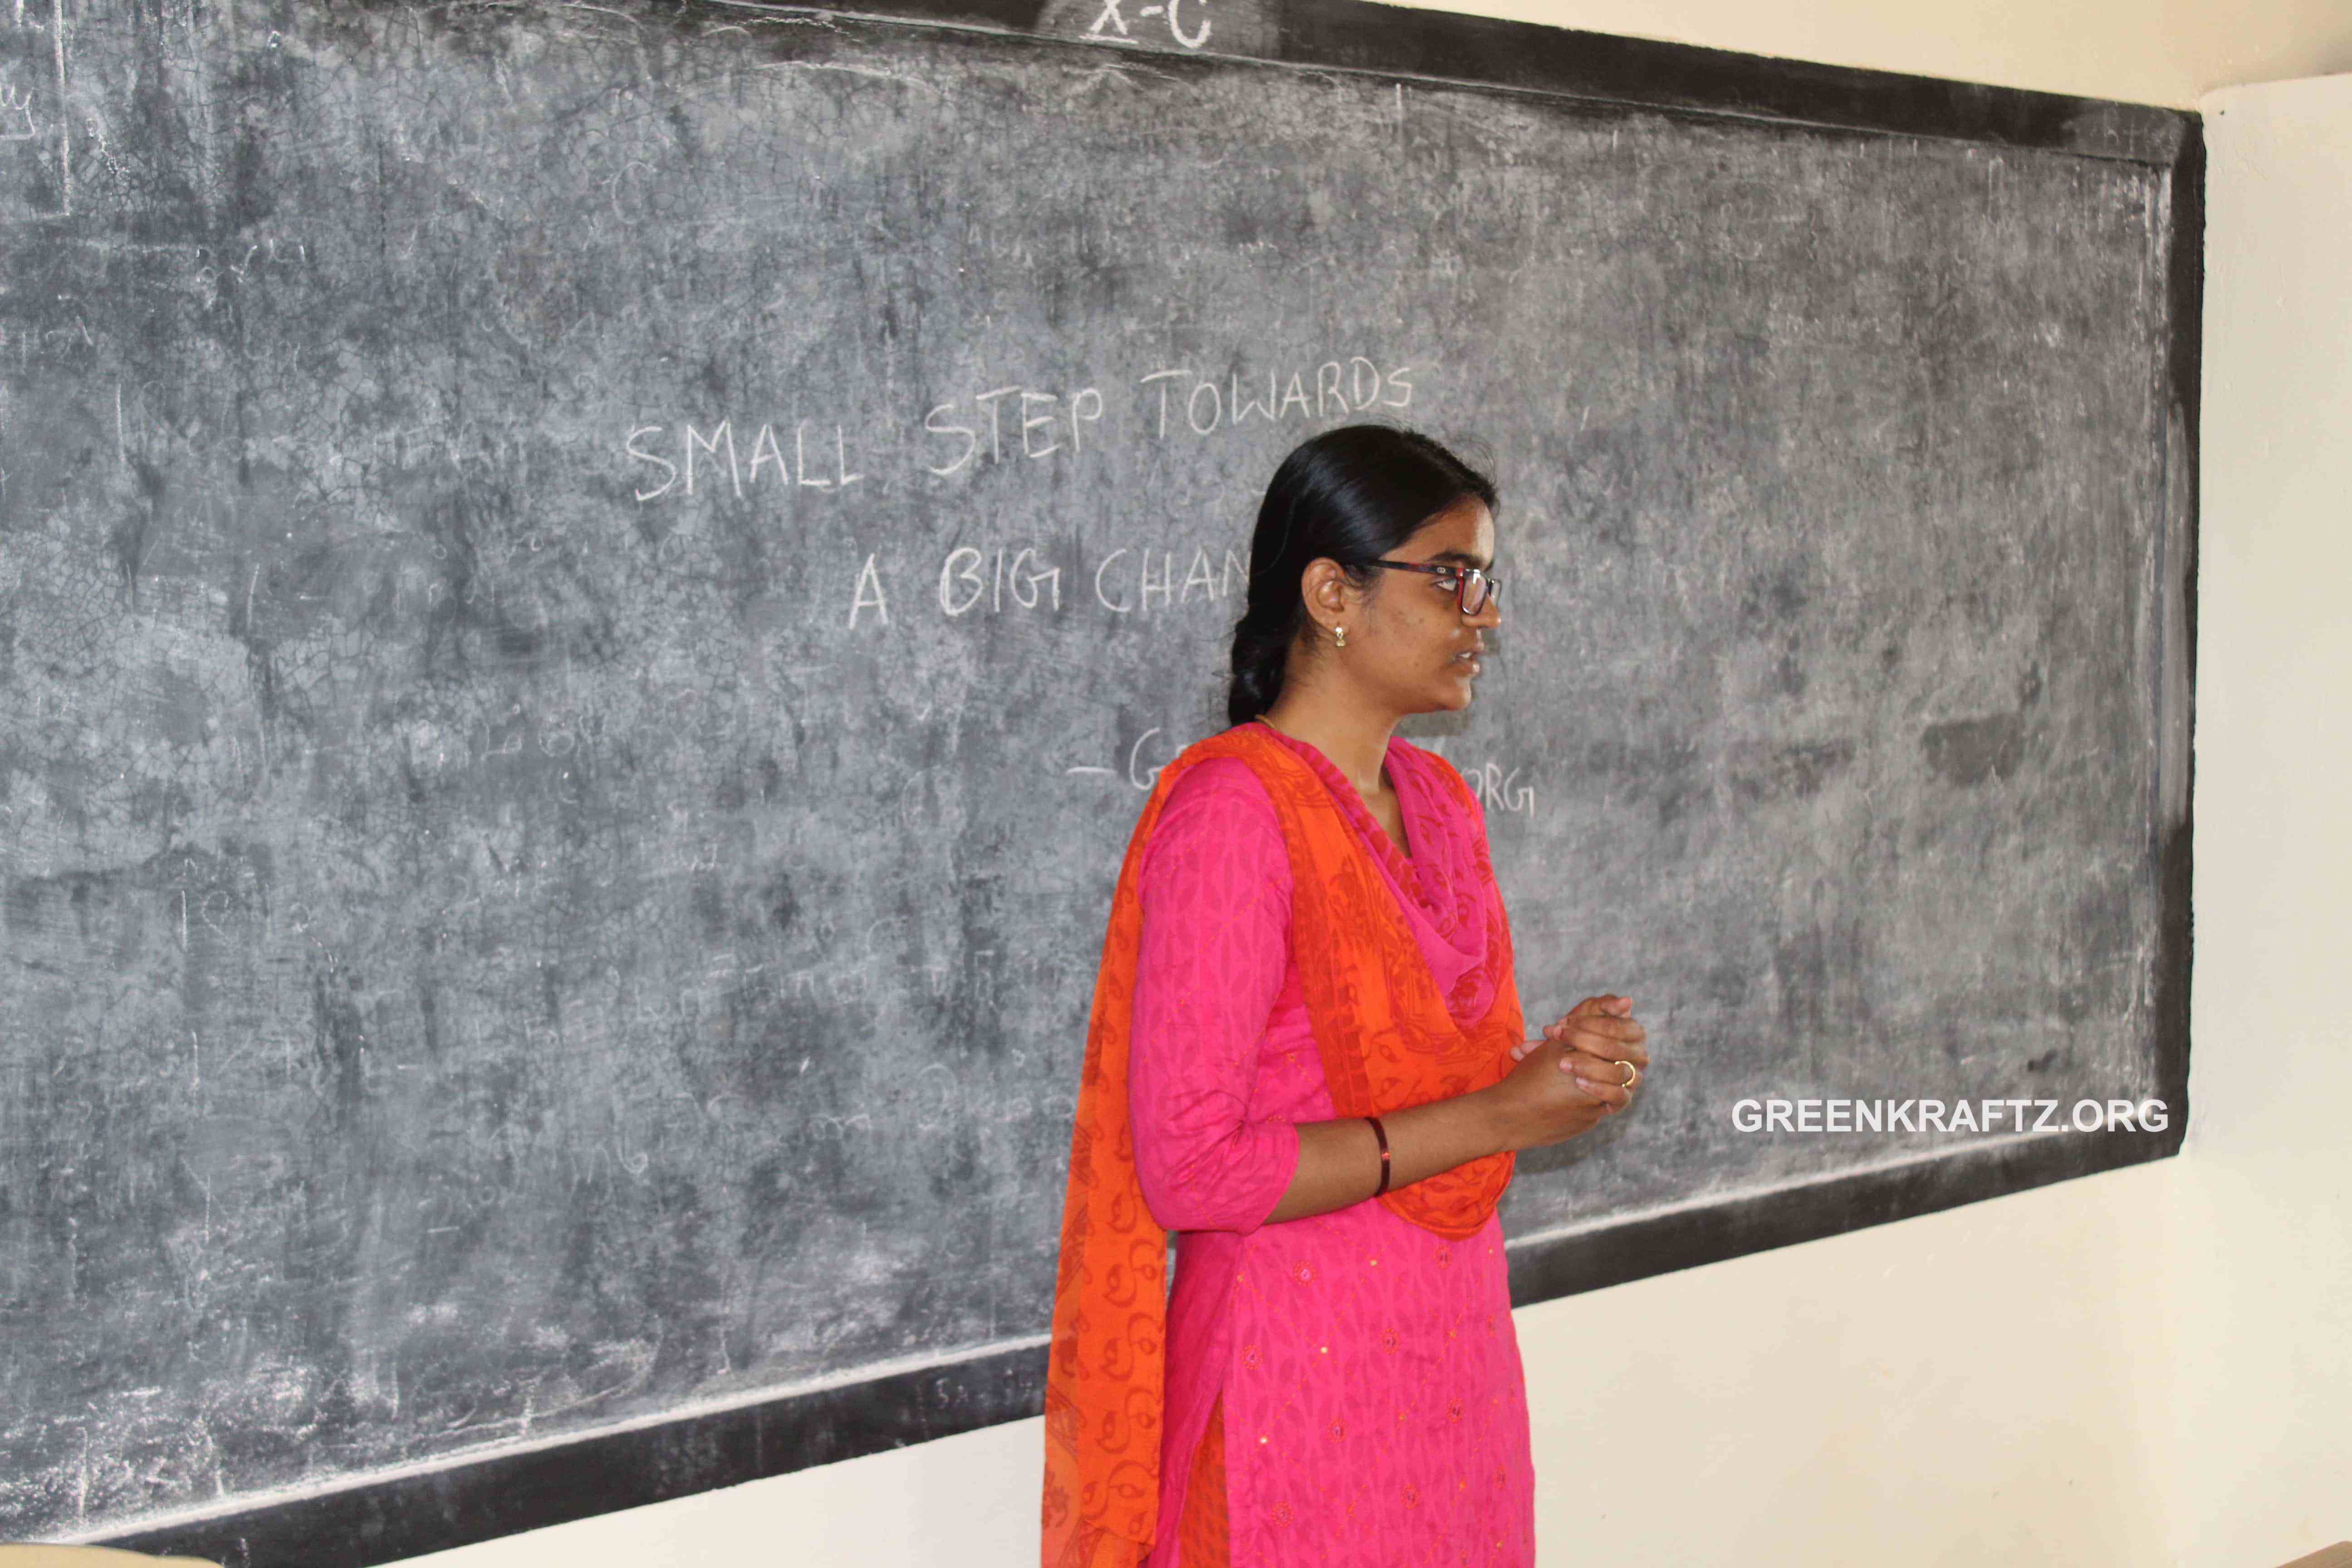 X-C
SMALL STEP TOWARDS
A BIG CHAN
- G ORG
GREENKRAFTZ.ORG